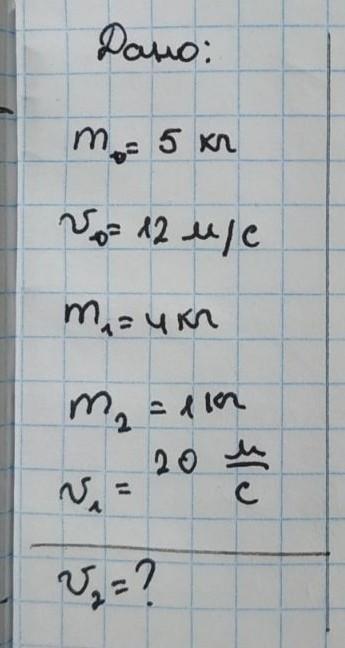 Дано:
m₀ = 5 кг
v₀ = 12 м/с
m₁ = 4 кг
m₂ = 1 кг
v₁ = 20 м/с
v₂ = ?